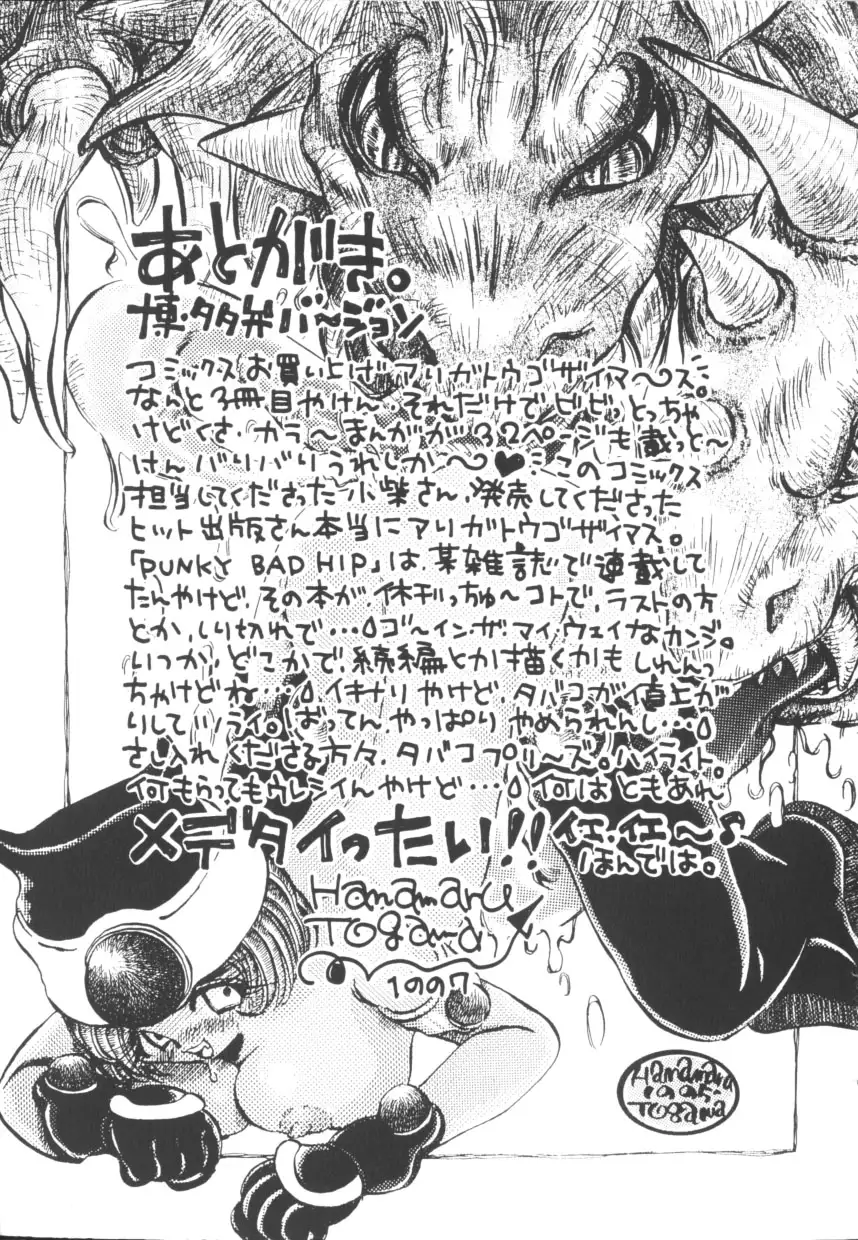 あとがき。
博・多弁バ〜ジョン
コミックスお買い上げアリガトウゴザイマ〜ス。
なんと3冊目やけん、それだけでビビっとっちゃ
けどくさ、カラ〜まんがが32ページも載っと〜
けんバリバリうれしか〜♥ミこのコミックス
担当してくださった小柴さん、発売してくださった
ヒット出版さん本当にアリガトウゴザイマス。
「PUNKY BAD HIP」は、某雑誌で連載して
たんやけど、その本が、休刊っちゅ〜コトで、ラストの方
とか、しり切れで…ゴ〜イン・ザ・マイ・ウェイなカンジ。
いつか、どこかで、続編とか描くかもしれんっ
ちゃけどね…イキナリやけど、タバコが値上が
りしてツライ。ばってん、やっぱりやめられんし…
さし入れくださる方々、タバコプリ〜ズ。ハイライト。
何もらってもウレシイんやけど…何はともあれ
メデタイったい!!イエ・イエ〜♪
ほんでは。
Hanamaru
TOgama
1997
Hanamaru
1995
TOgama